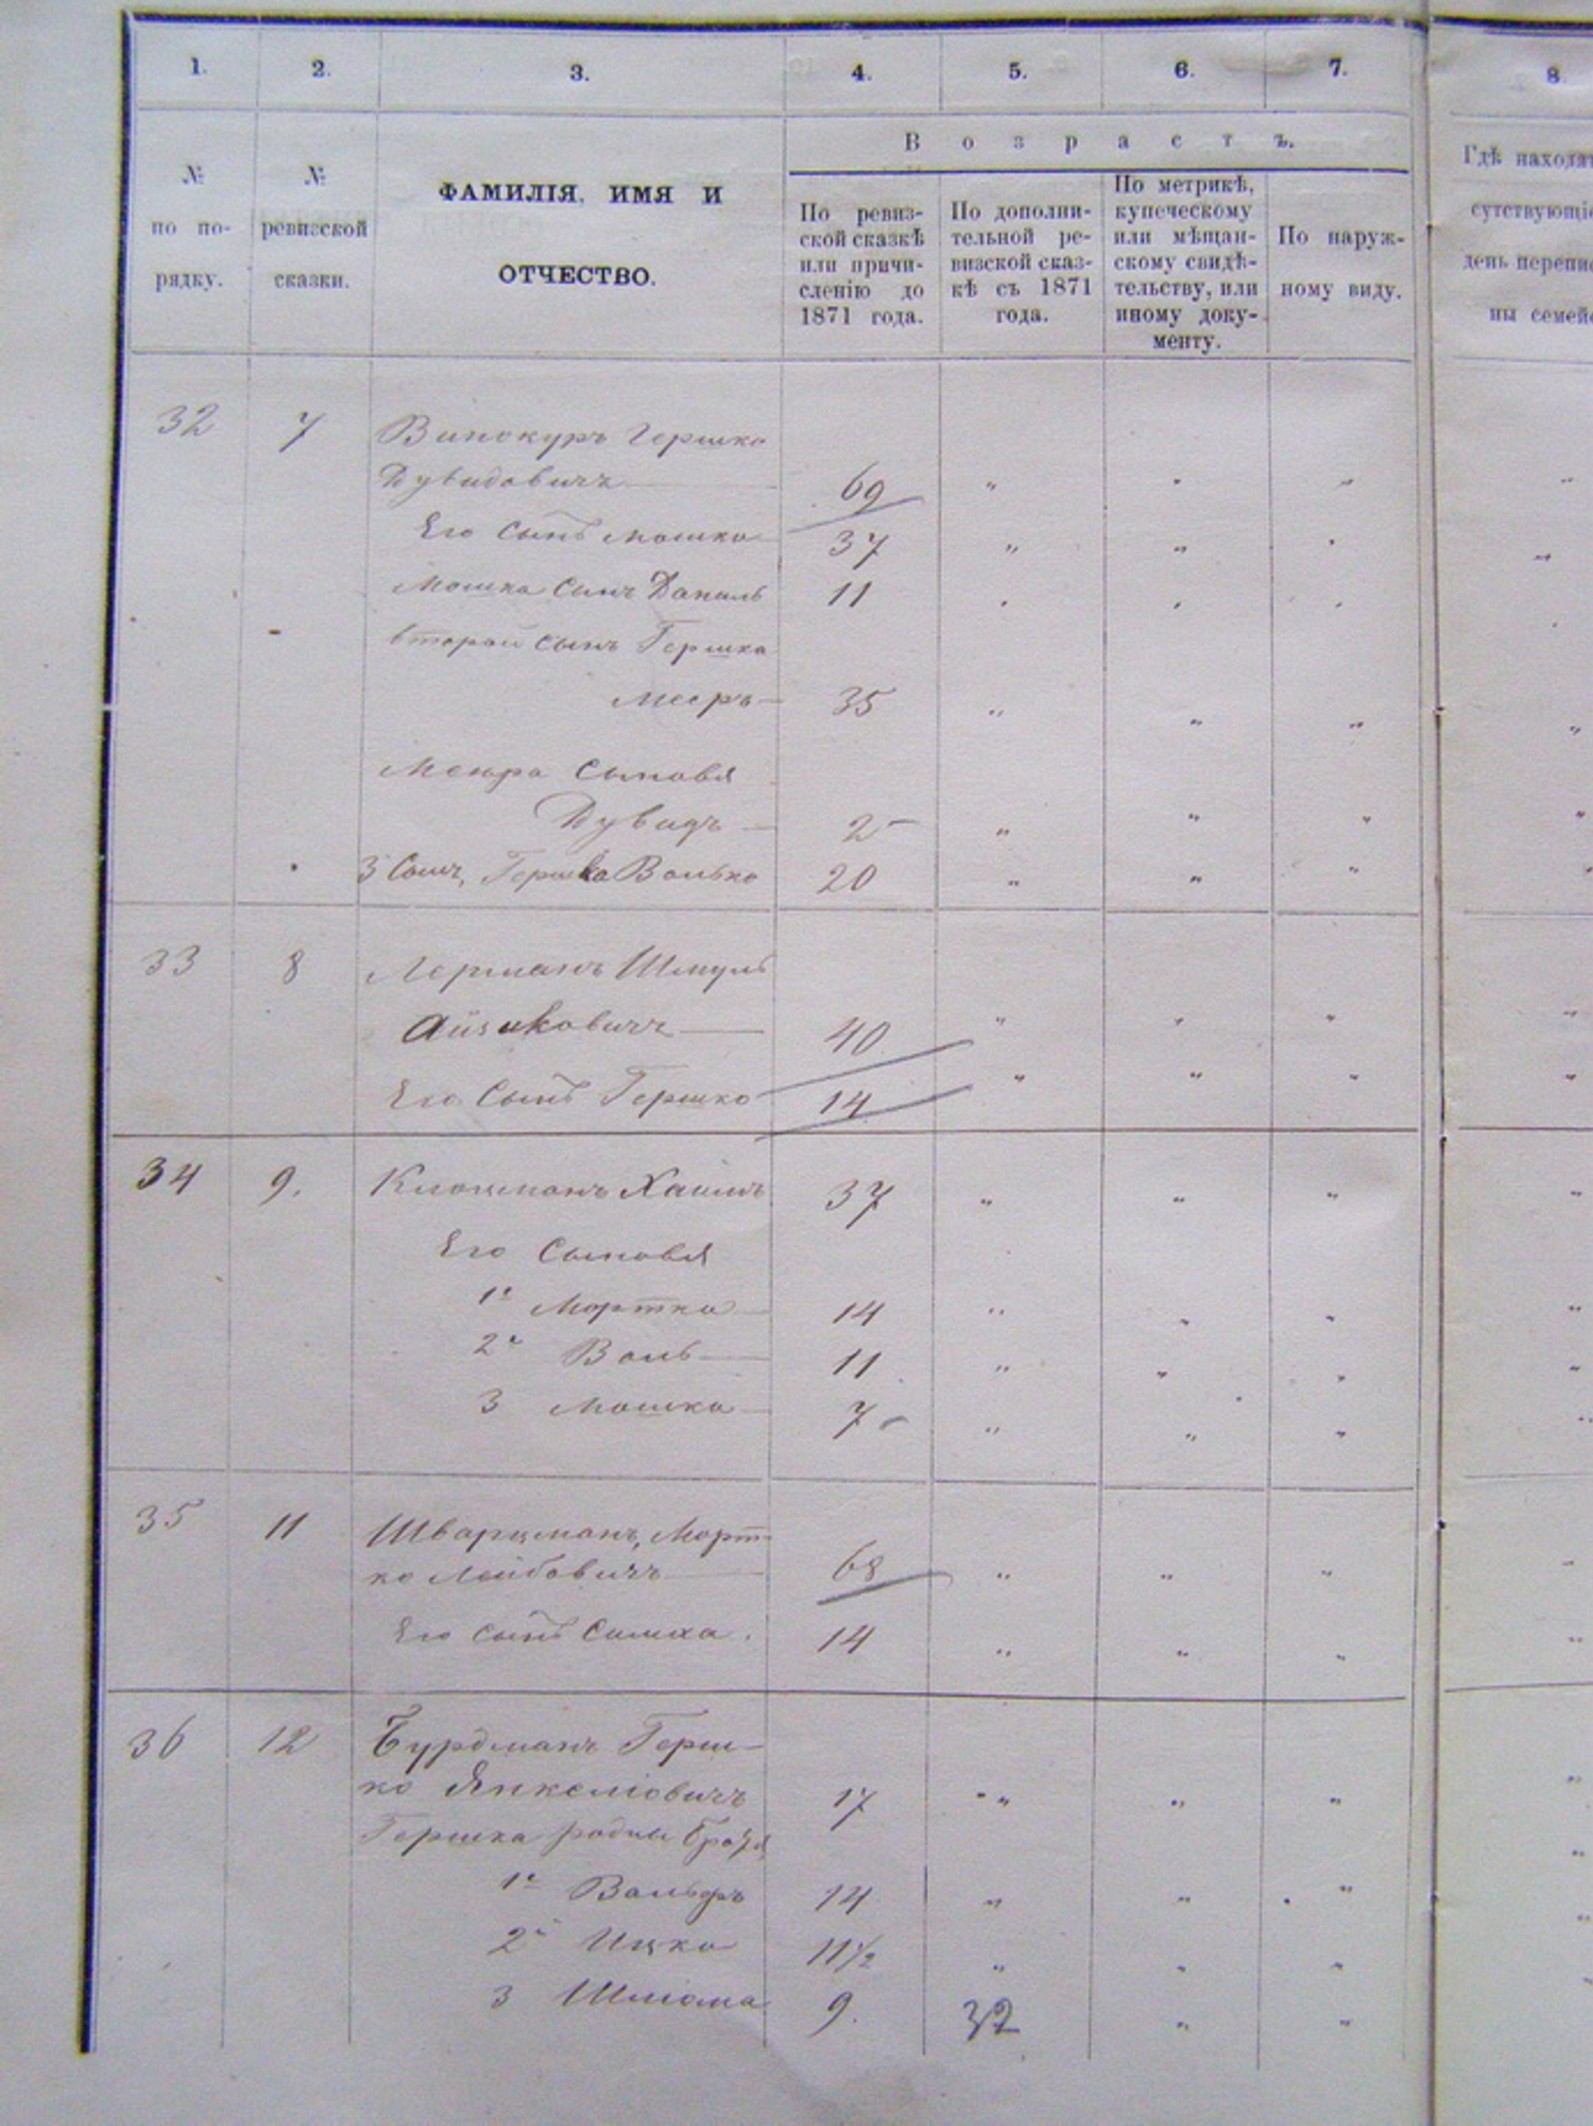 1. 2. 3. 4. 5. 6. 7. 8
№
по по-
рядку.
№
ревизской
сказки.
ФАМИЛІЯ, ИМЯ И
ОТЧЕСТВО.
Возрастъ.
По ревиз-
ской сказкѣ
или причи-
сленію до
1871 года.
По дополни-
тельной ре-
визской сказ-
кѣ съ 1871
года.
По метрикѣ,
купеческому
или мѣщан-
скому свидѣ-
тельству, или
иному доку-
менту.
По наруж-
ному виду.
Гдѣ находят
сутствующіе
день перепис
ны семейс
32 7 Винокуръ Гершко
Дувидовичъ 69 " " "
Его сынъ Мошко 37 " " "
Мошка сынъ Даниль 11 " " "
второй сынъ Гершка
Мееръ 35 " " "
Меера сыновья
Дувидъ 2 " " "
3 сынъ, Гершка Волько 20 " " "
33 8 Лерманъ Шмуль
Айзиковичъ 40 " " "
Его сынъ Гершко 14 " " "
34 9. Хаимъ 37 " " "
Его сыновья
1й Мортко 14 " " "
2й Воль 11 " " "
3 Мошко 7 " " "
35 11 Шварцманъ, Морт-
ко Лейбовичъ 68 " " "
Его сынъ Симха. 14 " " "
36 12 Бурдманъ Герш-
ко Янкеліовичъ 17 " " "
Гершка родные братья
1й Вольфъ 14 " " "
2й Ицко 11½ " " "
3 Шлiома 9. 32 " "